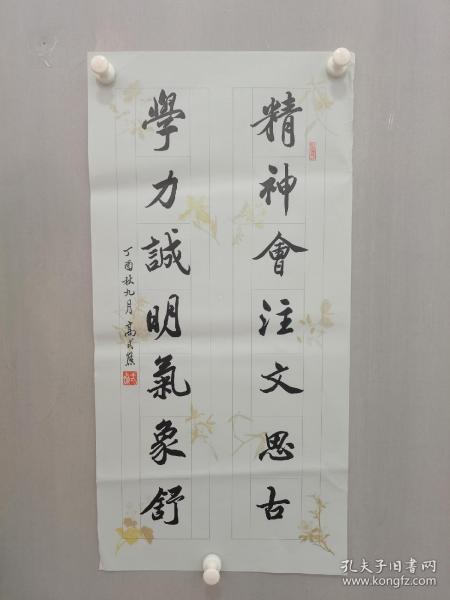 精神會注文思古
學力誠明氣象舒
丁酉秋九月 高式熊
孔夫子旧书网
www.kongfz.com